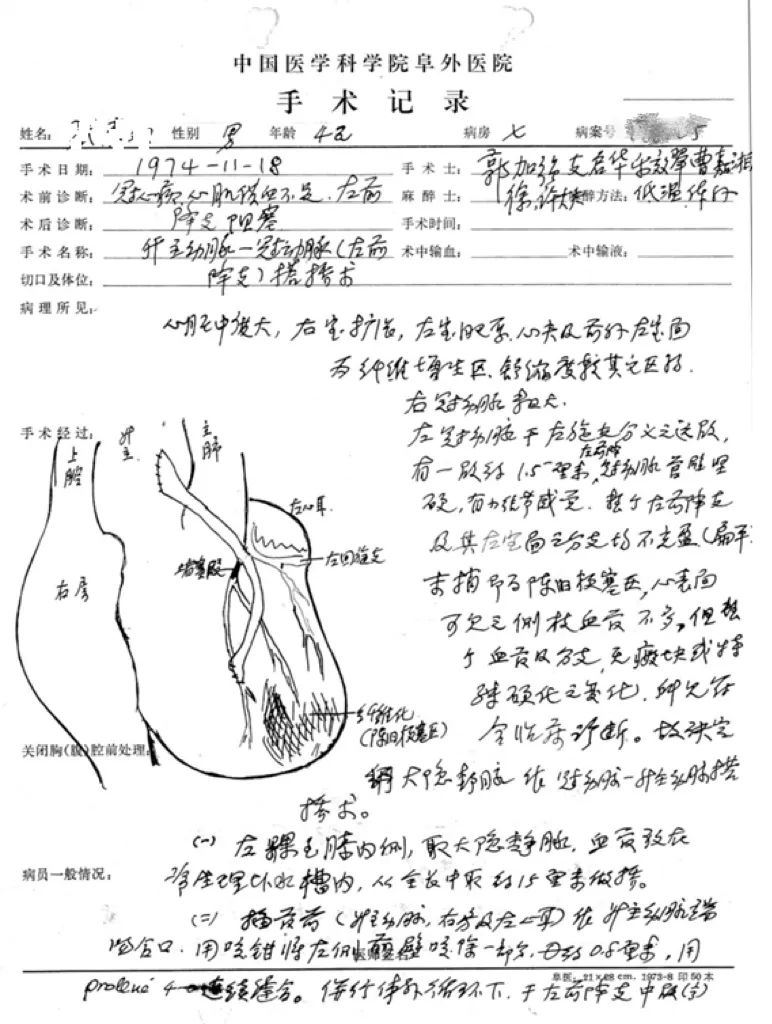 中国医学科学院阜外医院
手术记录
姓名: 性别 男 年龄 病房 七 病案号 5
手术日期: 1974-11-18 手术士: 郭加强
术前诊断: 冠心病、心肌供血不足、左前 麻醉士: 徐 麻醉方法: 低温、体外
术后诊断: 降支阻塞 手术时间:
手术名称: 升主动脉—冠状动脉(左前 术中输血: 术中输液:
切口及体位: 降支)搭桥术
病理所见:
心脏中度大,右室扩张,左室肥厚、心尖及前外左室面
为纤维增生区、舒缩度较其它区弱.
右冠动脉粗大.
手术经过: 左冠动脉于左旋支分叉之远段,
有一段约1.5厘米,左前降冠动脉管壁坚
硬,有如结节感觉. 整个左前降支
及其左室面之分支均不充盈(扁平
末梢即为陈旧梗塞区,心表面
可见之侧枝血管不多,但整
个血管及分支,无瘢块或特
殊硬化之变化,
合临床诊断。故决定
大隐静脉作冠动脉—升主动脉搭
桥术。
上腔
升主
主肺
左心耳
左回旋支
堵塞段
右房
纤维化
(陈旧梗塞区)
关闭胸(腹)腔前处理:
(一) 左踝至膝内侧,取大隐静脉,血管放在
病员一般情况: 冷生理盐水槽内,从全长中取约15厘米做搭。
(二) 搭管前(升主动脉,右房及左心耳)作升主动脉端
吻合口,用咬钳将左侧前壁咬除一部分,口约0.8厘米,用
阜医: 21×28 cm. 1973-8 印50本
prolene 4-0连续缝合。併行体外循环下,于左前降支中段(